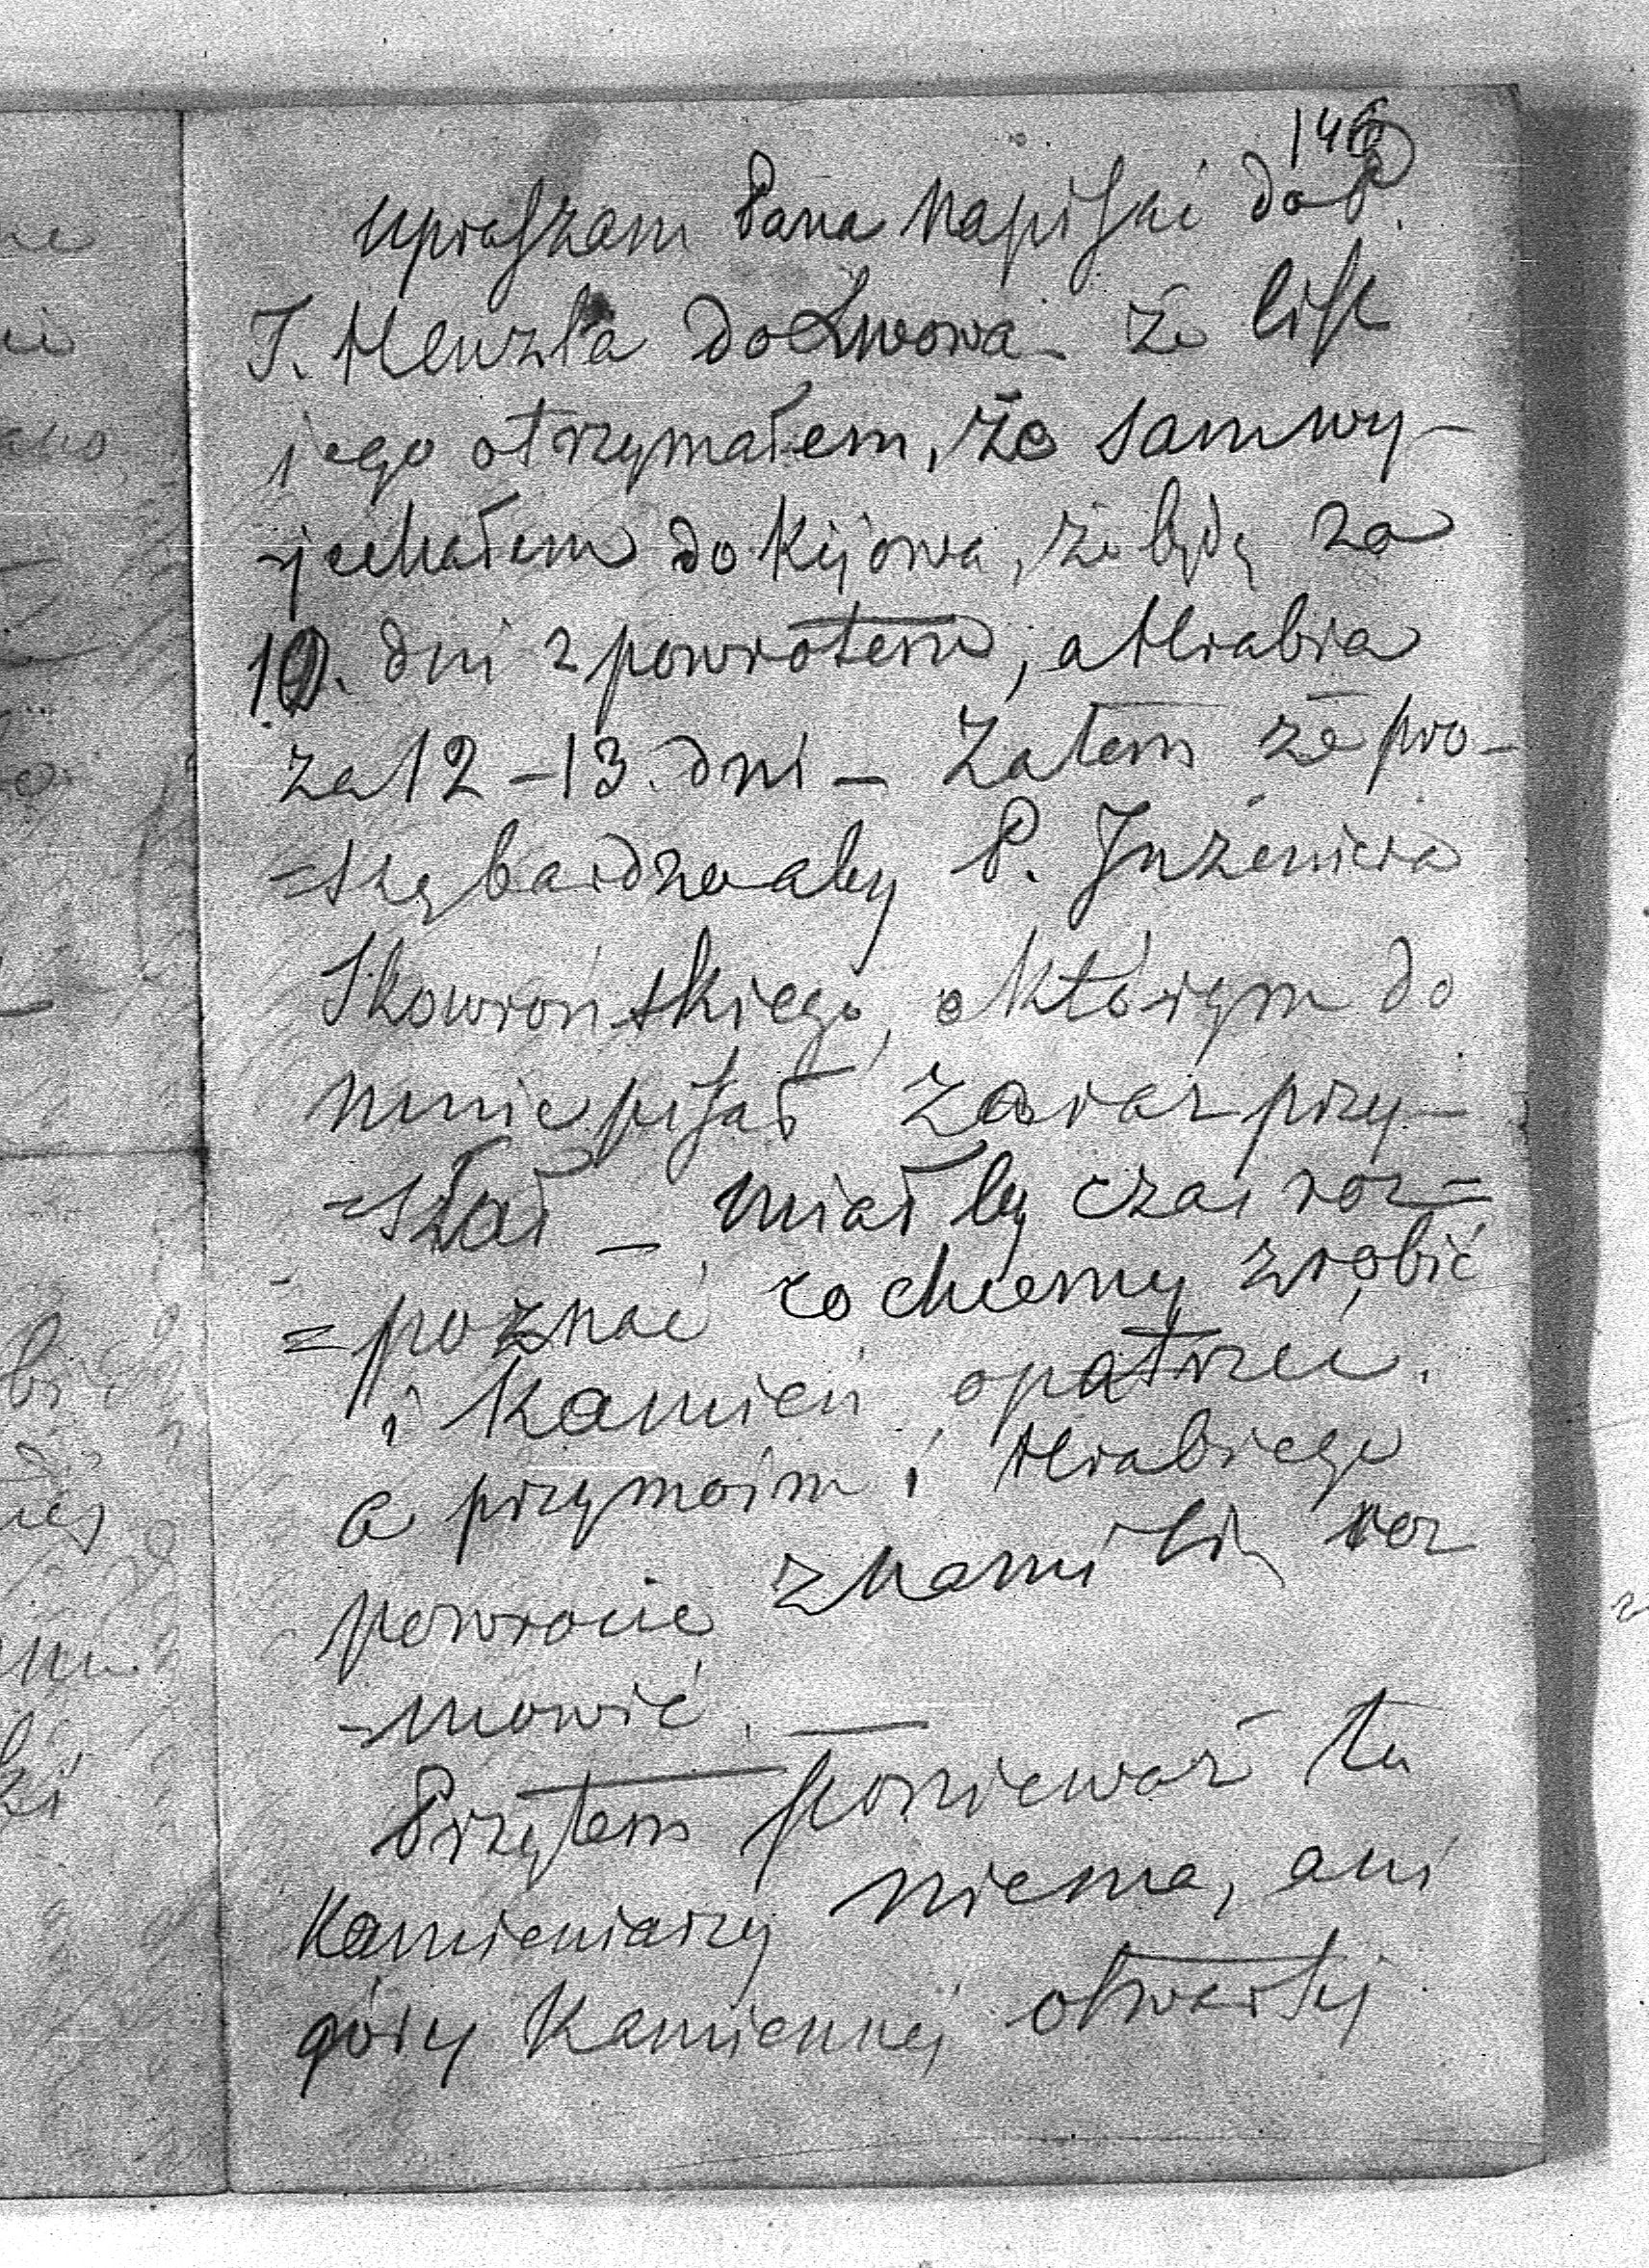 146
upraszam Pana napisać do P.
J. Menzla do Lwowa – że list
jego otrzymałem, że sam wy-
-jechałem do Kijowa, że będę za
10. dni z powrotem, a Hrabia
za 12 – 13. dni – Zatem że pro-
=szę bardzo aby P. Inżeniera
Skowrońskiego, o którym do
mnie pisał zaraz przy-
=słał – miałby czas roz=
=poznać co chcemy zrobić
i Kamień opatrzeć.
a przy moim i Hrabiego
powrocie z nami się roz
-mówić. —
Przytem ponieważ tu
Kamieniarzy niema, ani
góry Kamiennej otwartej